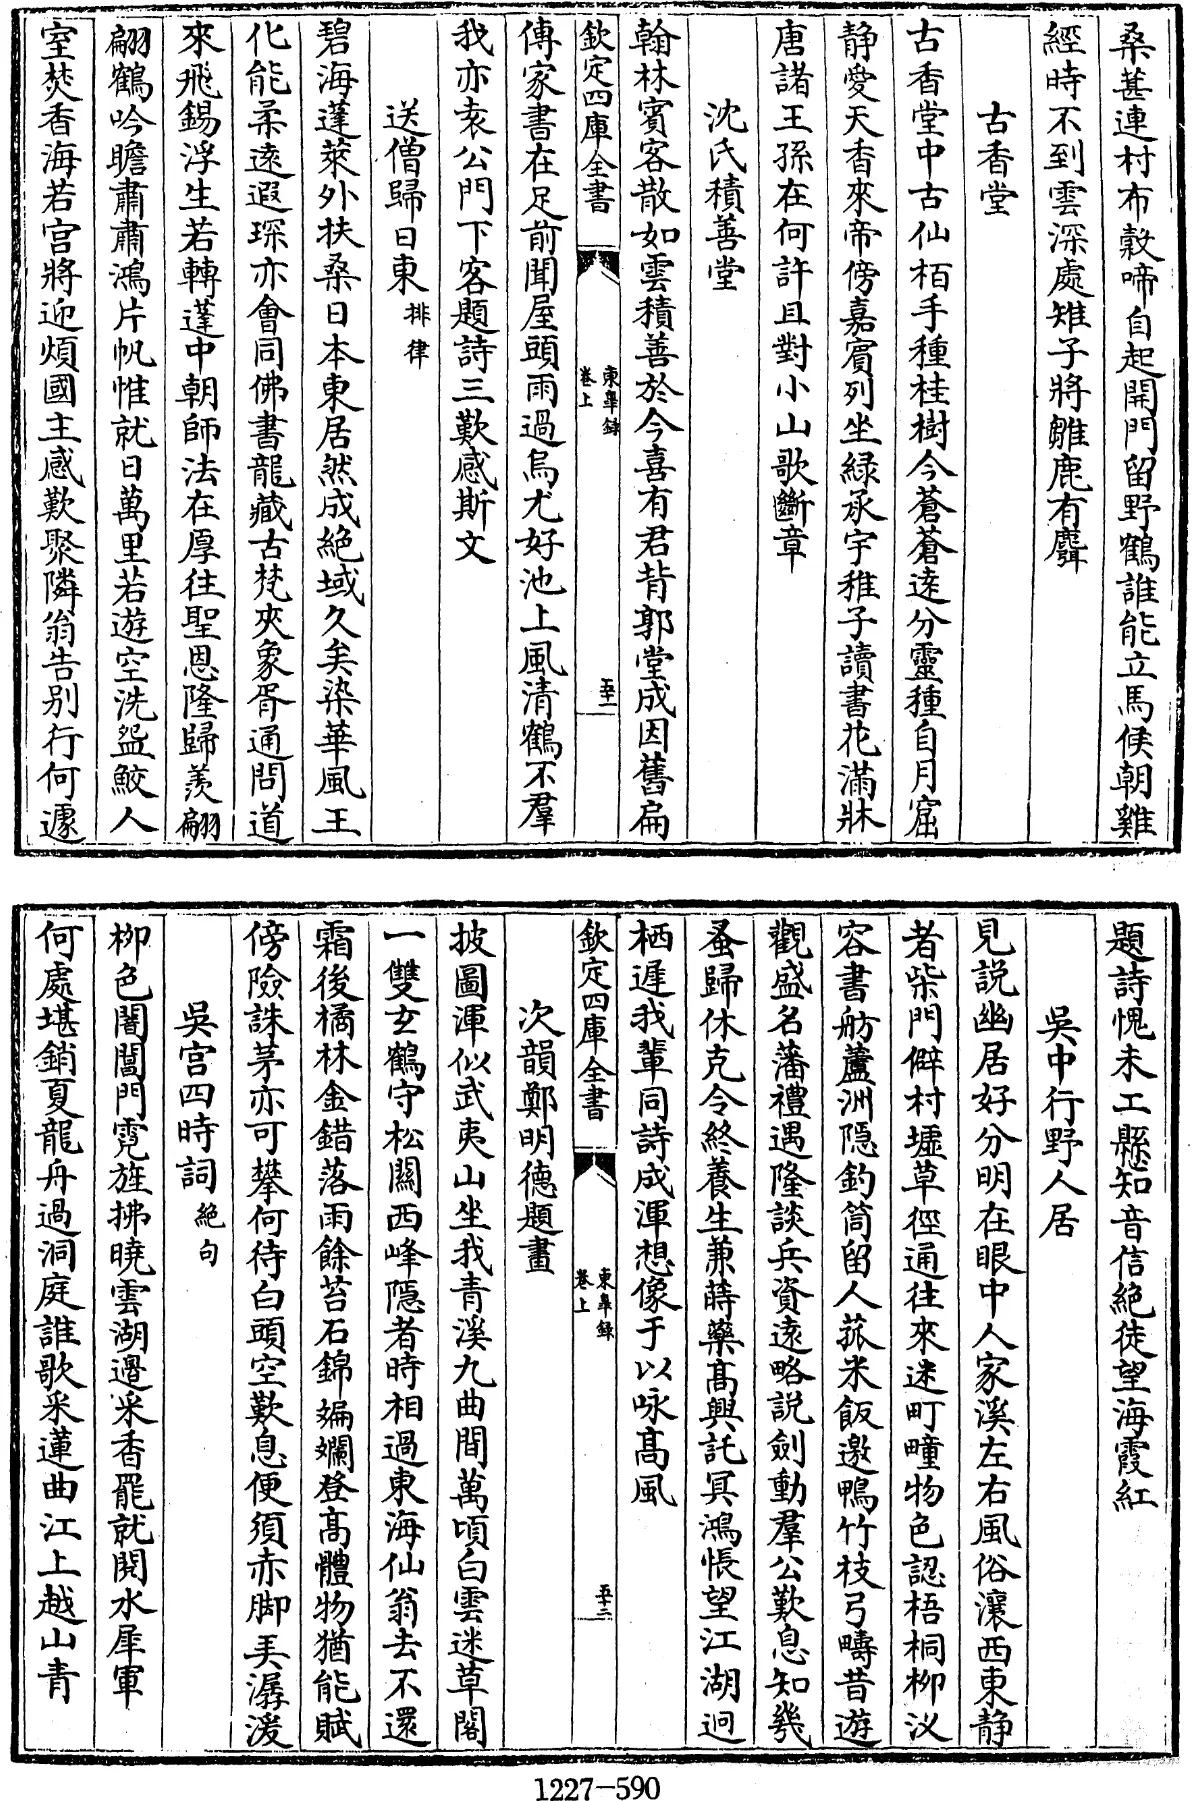 桑葚連村布穀啼自起開門留野鶴誰能立馬俟朝雞
經時不到雲深處雉子將雛鹿有麛
古香堂
古香堂中古仙栢手種桂樹今蒼蒼逺分靈種自月窟
静愛天香來帝傍嘉賓列坐緑承宇稚子讀書花滿牀
唐諸王孫在何許且對小山歌斷章
沈氏積善堂
翰林賓客散如雲積善於今喜有君背郭堂成因舊扁
欽定四庫全書
東臯録
卷上
五十一
傳家書在足前聞屋頭雨過烏尤好池上風清鶴不羣
我亦袁公門下客題詩三歎感斯文
送僧歸日東排律
碧海蓬萊外扶桑日本東居然成絶域久矣染華風王
化能柔逺遐琛亦會同佛書龍藏古梵夾象胥通問道
來飛錫浮生若轉蓬中朝師法在厚往聖恩隆歸羨翩
翩鶴吟瞻肅肅鴻片帆惟就日萬里若遊空洗盌鮫人
室焚香海若宫將迎煩國主感歎聚隣翁告别行何遽
題詩愧未工懸知音信絶徒望海霞紅
吳中行野人居
見説幽居好分明在眼中人家溪左右風俗瀼西東静
者柴門僻村墟草徑通往來迷町疃物色認梧桐栁汊
容書舫蘆洲隠釣筒留人菰米飯邀鴨竹枝弓疇昔遊
觀盛名藩禮遇隆談兵資逺略説劍動羣公歎息知幾
蚤歸休克令終養生兼蒔藥髙興託冥鴻悵望江湖迥
栖遲我輩同詩成渾想像于以咏髙風
欽定四庫全書
東臯録
卷上
五十二
次韻鄭明德題畫
披圖渾似武夷山坐我青溪九曲間萬頃白雲迷草閣
一雙玄鶴守松關西峰隠者時相過東海仙翁去不還
霜後橘林金錯落雨餘苔石錦斒斕登髙體物猶能賦
傍險誅茅亦可攀何待白頭空歎息便須赤脚弄潺湲
吳宫四時詞絶句
栁色闇閶門霓旌拂曉雲湖邉采香罷就閲水犀軍
何處堪銷夏龍舟過洞庭誰歌采蓮曲江上越山青
1227—590